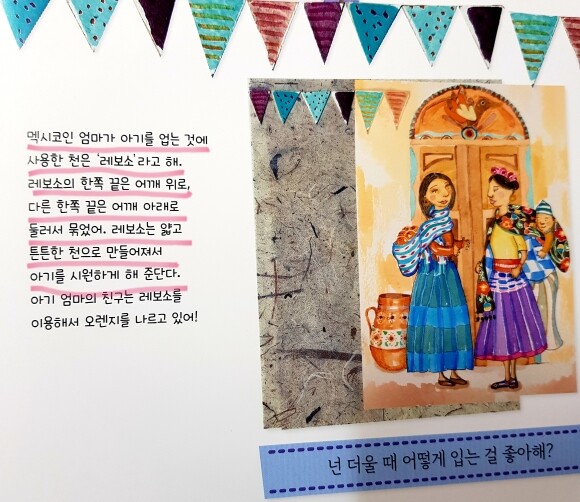 멕시코인 엄마가 아기를 업는 것에
사용한 천은 '레보소'라고 해.
레보소의 한쪽 끝은 어깨 위로,
다른 한쪽 끝은 어깨 아래로
둘러서 묶었어. 레보소는 얇고
튼튼한 천으로 만들어져서
아기를 시원하게 해 준단다.
아기 엄마의 친구는 레보소를
이용해서 오렌지를 나르고 있어!
넌 더울 때 어떻게 입는 걸 좋아해?